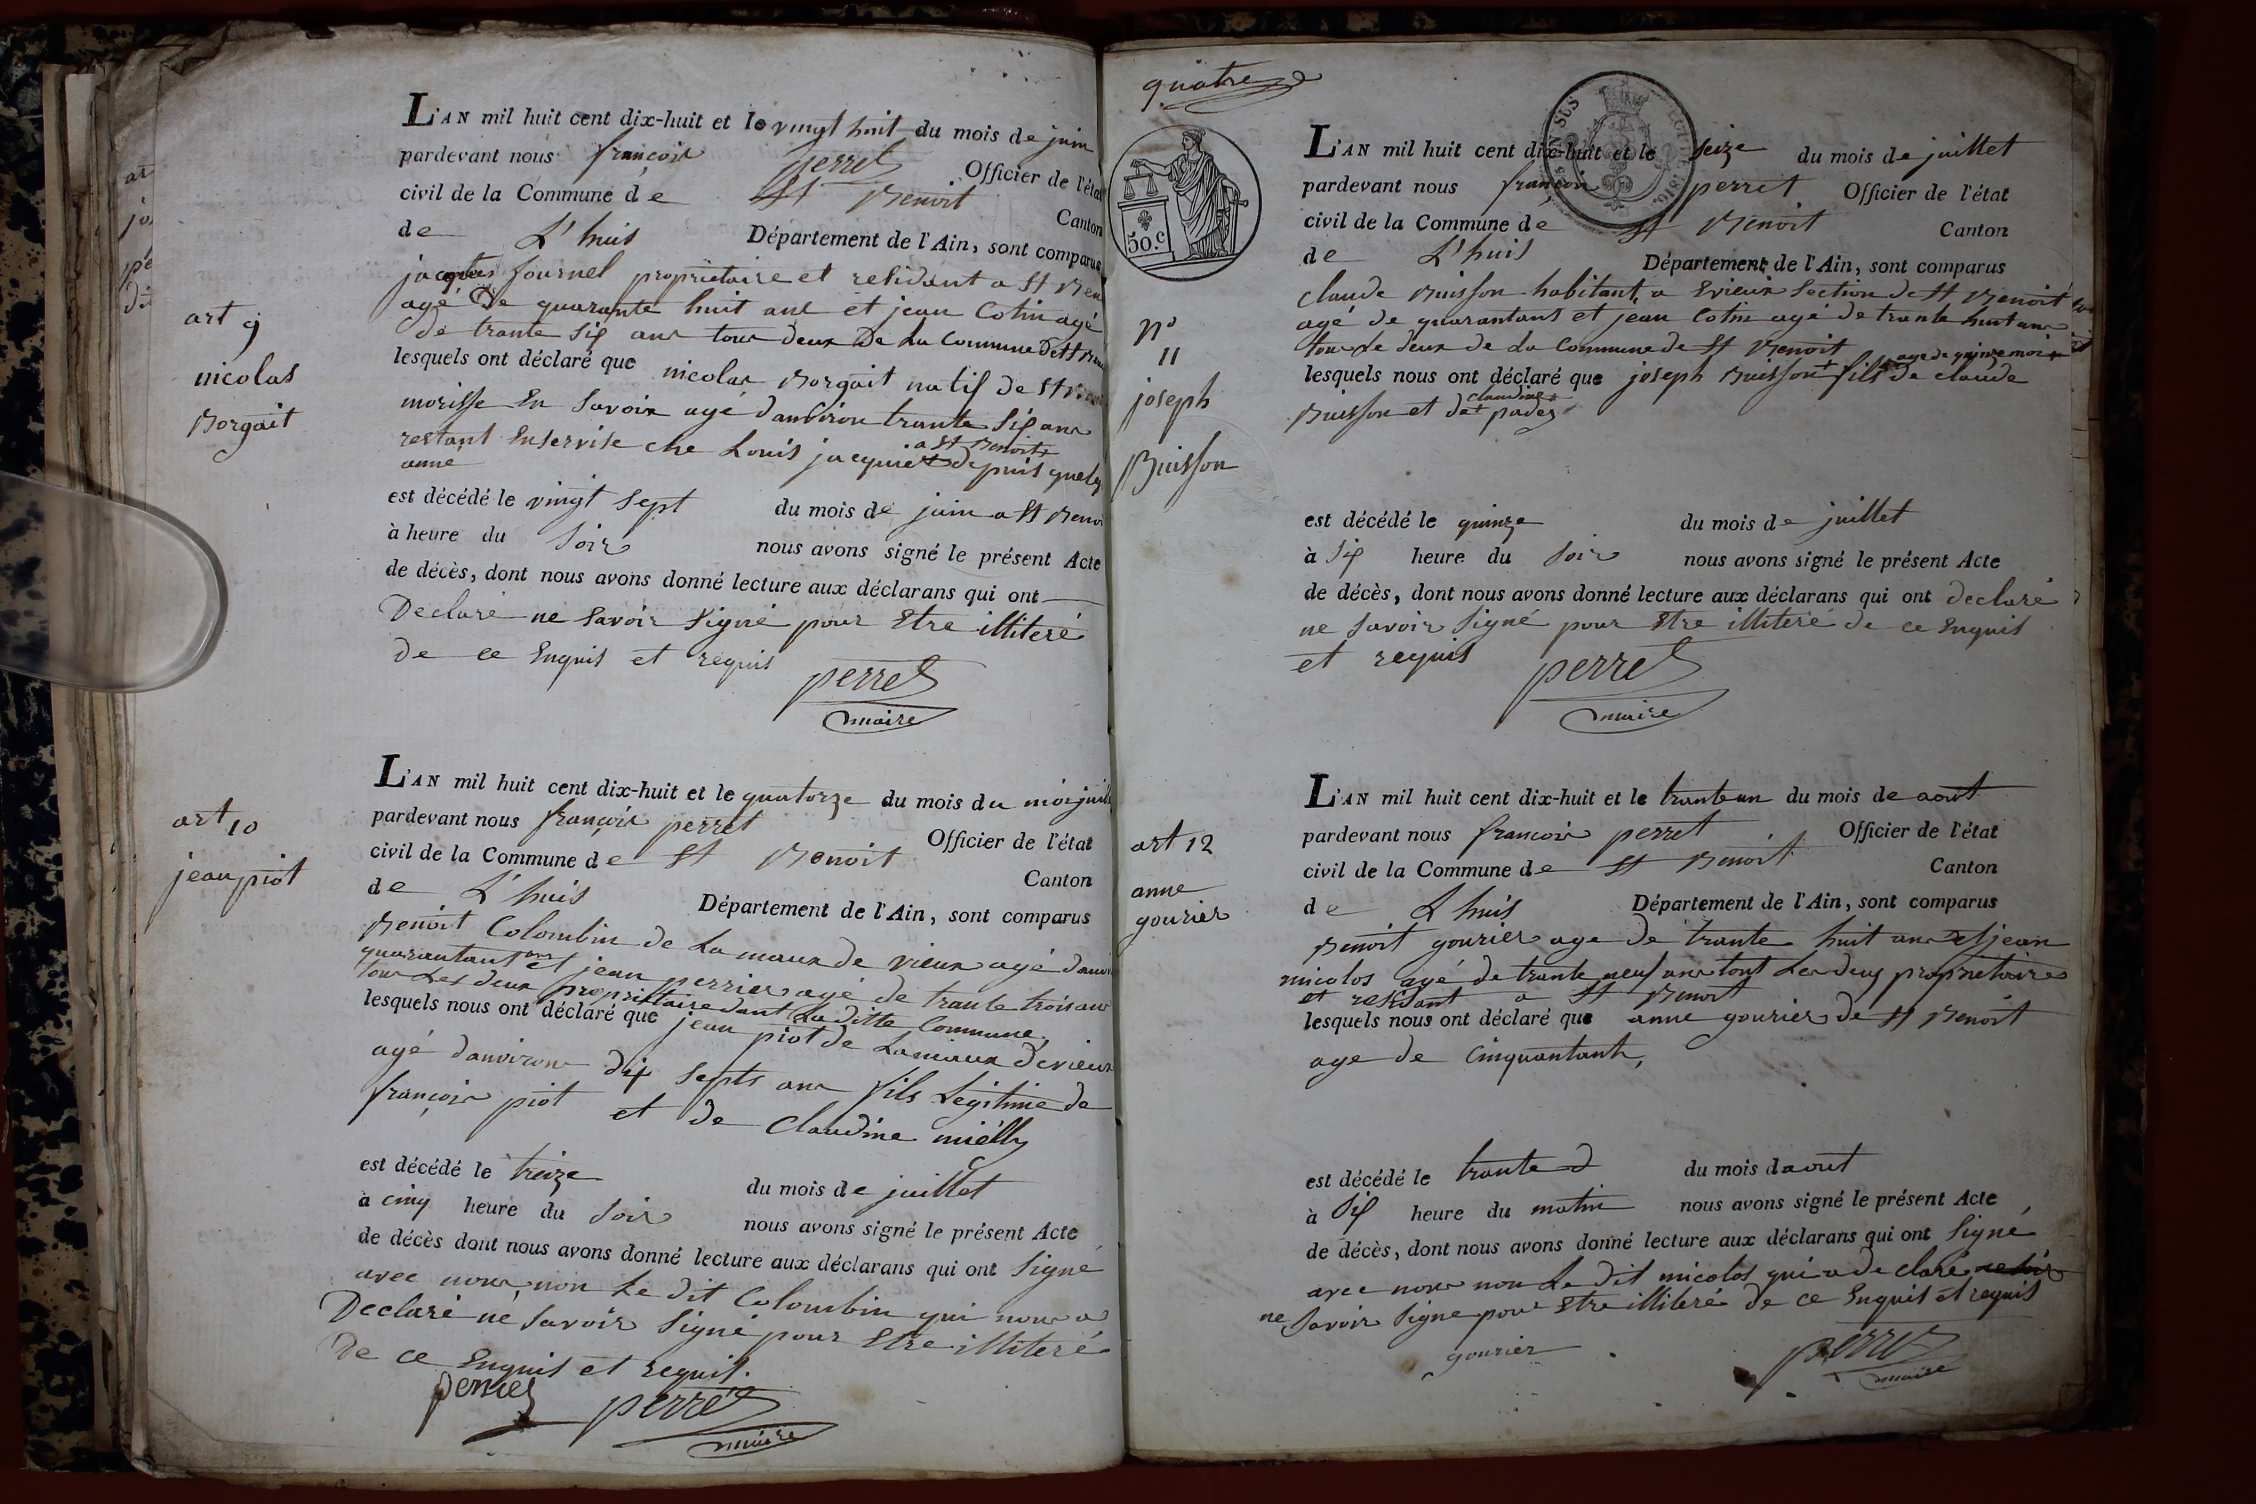 art 9
nicolas
Borgait
L'AN mil huit cent dix-huit et le vingt huit du mois de juin
pardevant nous françois perret Officier de l'état
civil de la Commune de St Benoit Canton
de L'huis Département de l'Ain, sont comparus
jacques fournel proprietaire et residant a St Ben
agé De quarante huit ans et jean Cotin agé
de trante six ans tous deux De La Commune De St
lesquels ont déclaré que nicolas Borgait natif de St
morisse En Savoix agé danviron trante Six ans
restant En servise che Louis jacquier a St Benoit depuis quelq
anné
est décédé le vingt sept du mois de juin a St Benoi
à heure du soir nous avons signé le présent Acte
de décès, dont nous avons donné lecture aux déclarans qui ont
Declaré ne savoir signé pour Etre illiteré
de ce Enquis et requis
perret
maire
art 10
jean piot
L'AN mil huit cent dix-huit et le quatorze du mois du mois juill
pardevant nous françois perret Officier de l'état
civil de la Commune de St Benoit Canton
de L'huis Département de l'Ain, sont comparus
Benoit Colombin de La maux de vieux agé danvi
quarantans et jean perrier agé de trante trois ans
tous Les deux proprietaire dant La ditte Commune
lesquels nous ont déclaré que jean piot de Lamaux Devieux
agé danviron dix septs ans fils Legitime de
françois piot et de Claudine mielly
est décédé le treize du mois de juillet
à cinq heure du soir nous avons signé le présent Acte
de décès dont nous avons donné lecture aux déclarans qui ont Signé
avec nous non Le dit Colombin qui nous a
Declaré ne savoir signé pour Etre illiteré
De ce Enquis et requis.
perrier perret
maire
quatre
50.c
N°
11
joseph
Buisson
L'AN mil huit cent dix-huit et le seize du mois de juillet
pardevant nous françois perret Officier de l'état
civil de la Commune de St Benoit Canton
de L'huis Département de l'Ain, sont comparus
Claude Buisson habitant a Evieux Section de St Benoit
agé de quarantans et jean Cotin agé de trante huit ans
tous Le deux de La Commune de St Benoit
lesquels nous ont déclaré que joseph Buisson + fils De claude
+ age de quinze mois
Buisson et de claudine + pudez
est décédé le quinze du mois de juillet
à six heure du soir nous avons signé le présent Acte
de décès, dont nous avons donné lecture aux déclarans qui ont declaré
ne savoir signé pour Etre illiteré de ce Enquis
et requis
perret
maire
art 12
anne
gourier
L'AN mil huit cent dix-huit et le trante un du mois de aout
pardevant nous francois perret Officier de l'état
civil de la Commune de St Benoit Canton
de L huis Département de l'Ain, sont comparus
Benoit gourier age de trante huit ans et jean
micolos agé de trante neuf ans tout Les deux proprietaires
et residant a St Benoit
lesquels nous ont déclaré que anne gourier de St Benoit
age de Cinquantant,
est décédé le trante du mois daout
à six heure du matin nous avons signé le présent Acte
de décès, dont nous avons donné lecture aux déclarans qui ont Signé
avec nous non Le dit micolos qui a de claré
ne savoir signe pour Etre illiteré de ce Enquis et requis
gourier perret
maire